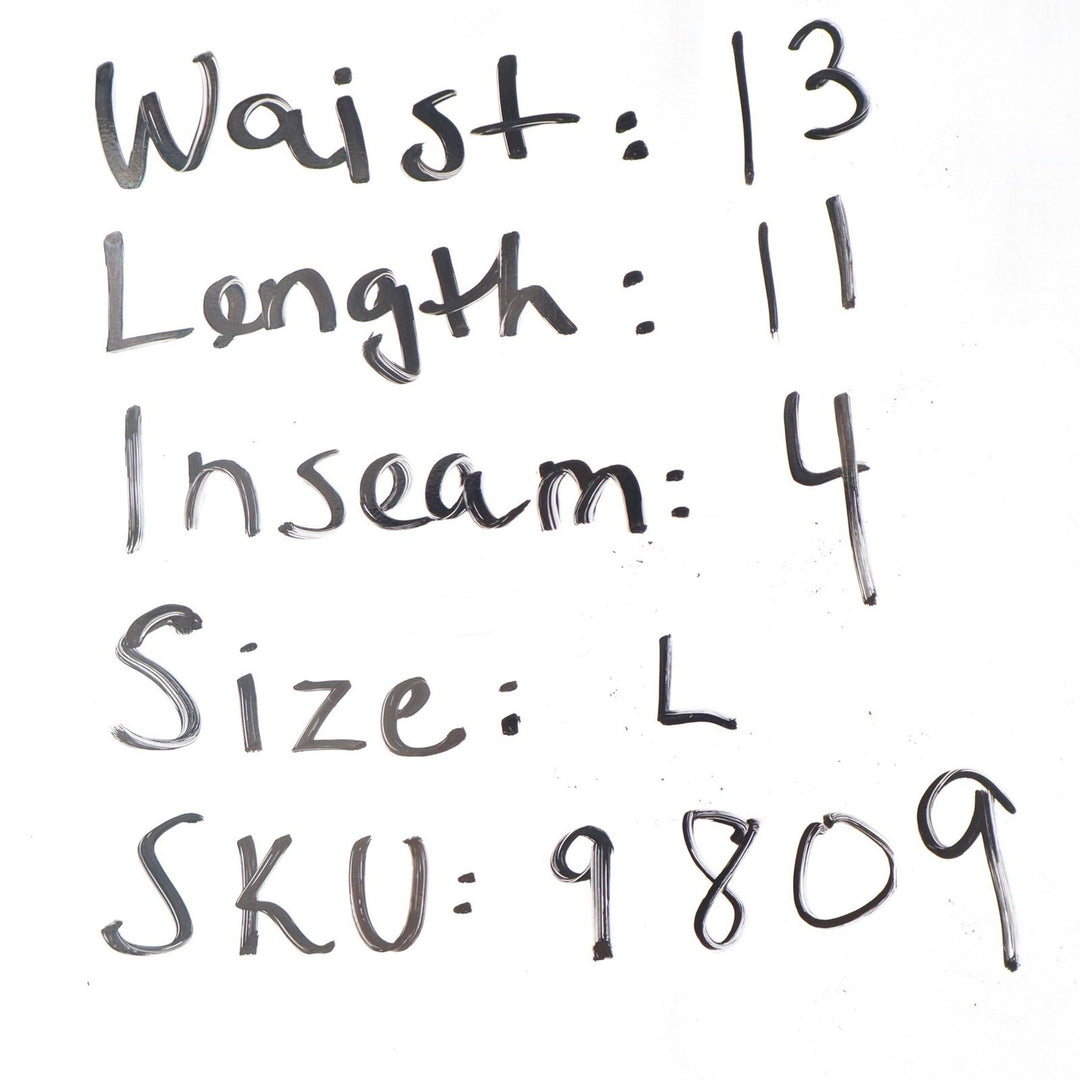 Waist: 13
Length: 11
Inseam: 4
Size: L
SKU: 9809